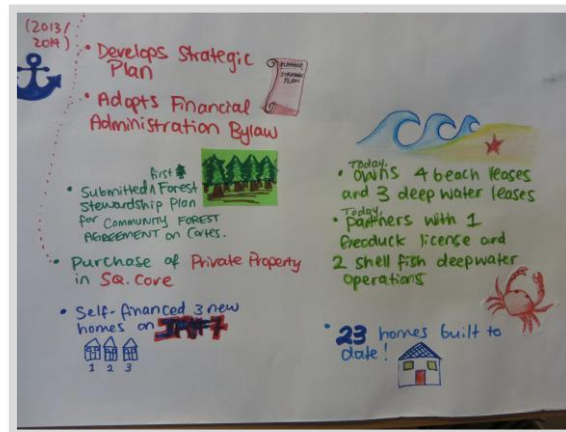 (2013/
2014)
• Develops Strategic
Plan
• Adopts Financial
Administration Bylaw
first
• Submitted ^ Forest
Stewardship Plan
for COMMUNITY FOREST
AGREEMENT on Cortes.
• Purchase of Private Property
in SQ. Core
• Self-financed 3 new
homes on
1 2 3
Today,
• owns 4 beach leases
and 3 deep water leases
Today,
• partners with 1
license and
2 shell fish deepwater
Operations
• 23 homes built to
date!